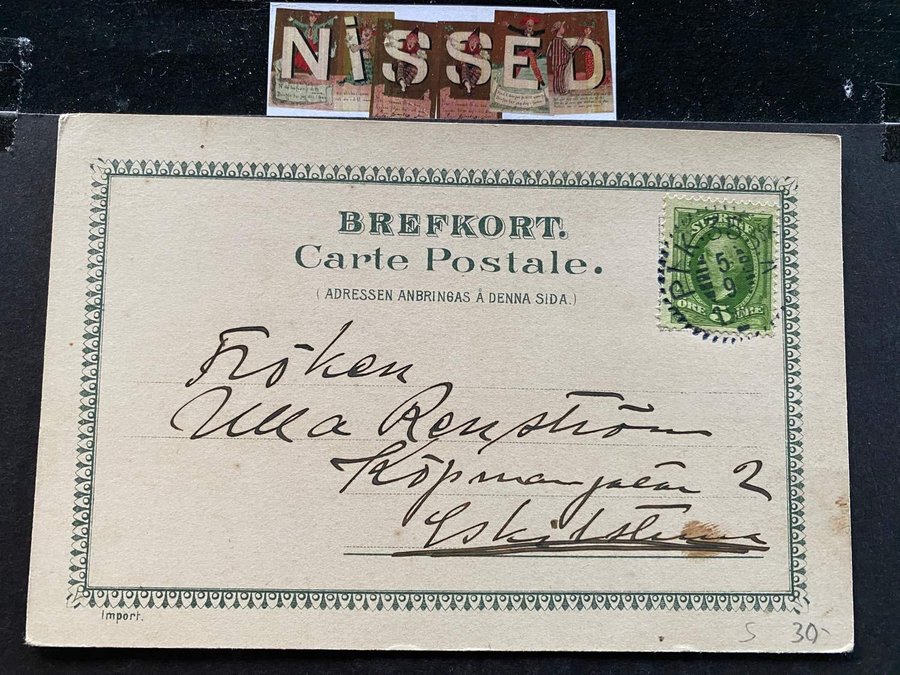 NISSED
BREFKORT.
Carte Postale.
(ADRESSEN ANBRINGAS Å DENNA SIDA.)
SVERIGE
5
9
ÖRE 5 ÖRE
Fröken
Ulla Renström
Köpmangatan 2
Eskilstuna
Import.
S 30-